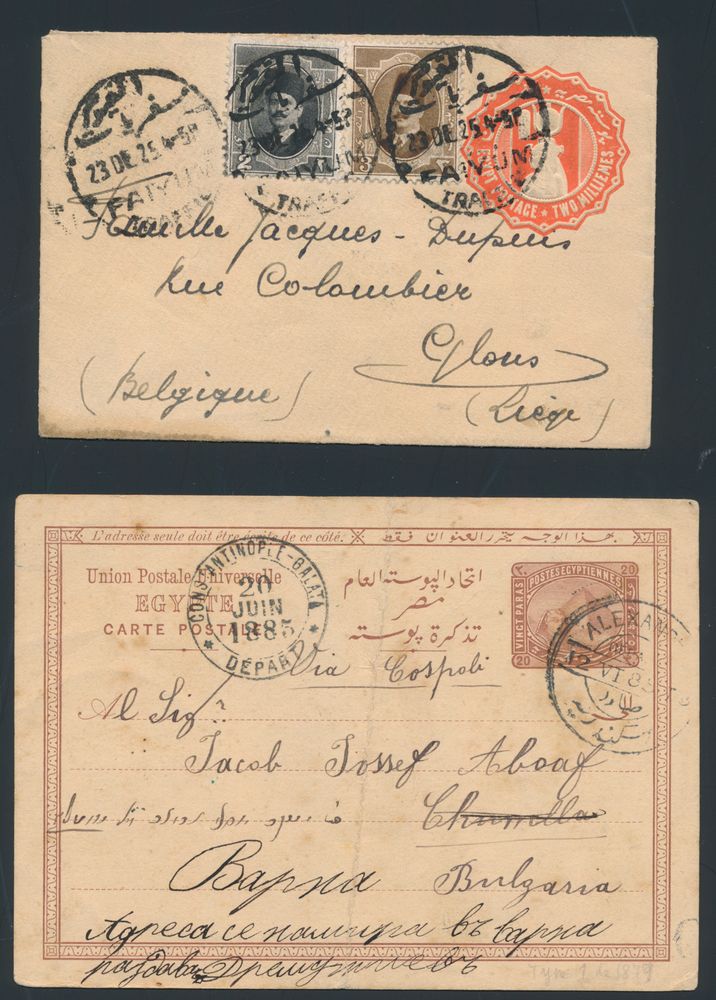 الفيوم
سفريات
23 DE 25 4-5P
FAIYUM
TRAFFIC
الفيوم
سفريات
23 DE 25 4-5P
FAIYUM
TRAFFIC
2
3
EGYPT POSTAGE ★ TWO MILLIEMES
Famille Jacques-Dupuis
Rue Colombier
Glons
(Belgique)
(Liège)
L'adresse seule doit être écrite de ce côté.
بهذا الوجه يتحرر العنوان فقط
Union Postale Universelle
EGYPTE
CARTE POSTALE
اتحاد البوسته العام
مصر
تذكرة بوسته
CONSTANTINOPLE-GALATA
20
JUIN
1885
DÉPART
20
POSTES EGYPTIENNES
VINGT PARAS
20
20
ALEXAN
VI 85
Via Cospoli
Al Sigr
Jacob Jossef Aboaf
Chumlla
Варна
Bulgaria
Адреса се намира въ варна
Type 1 de 1879